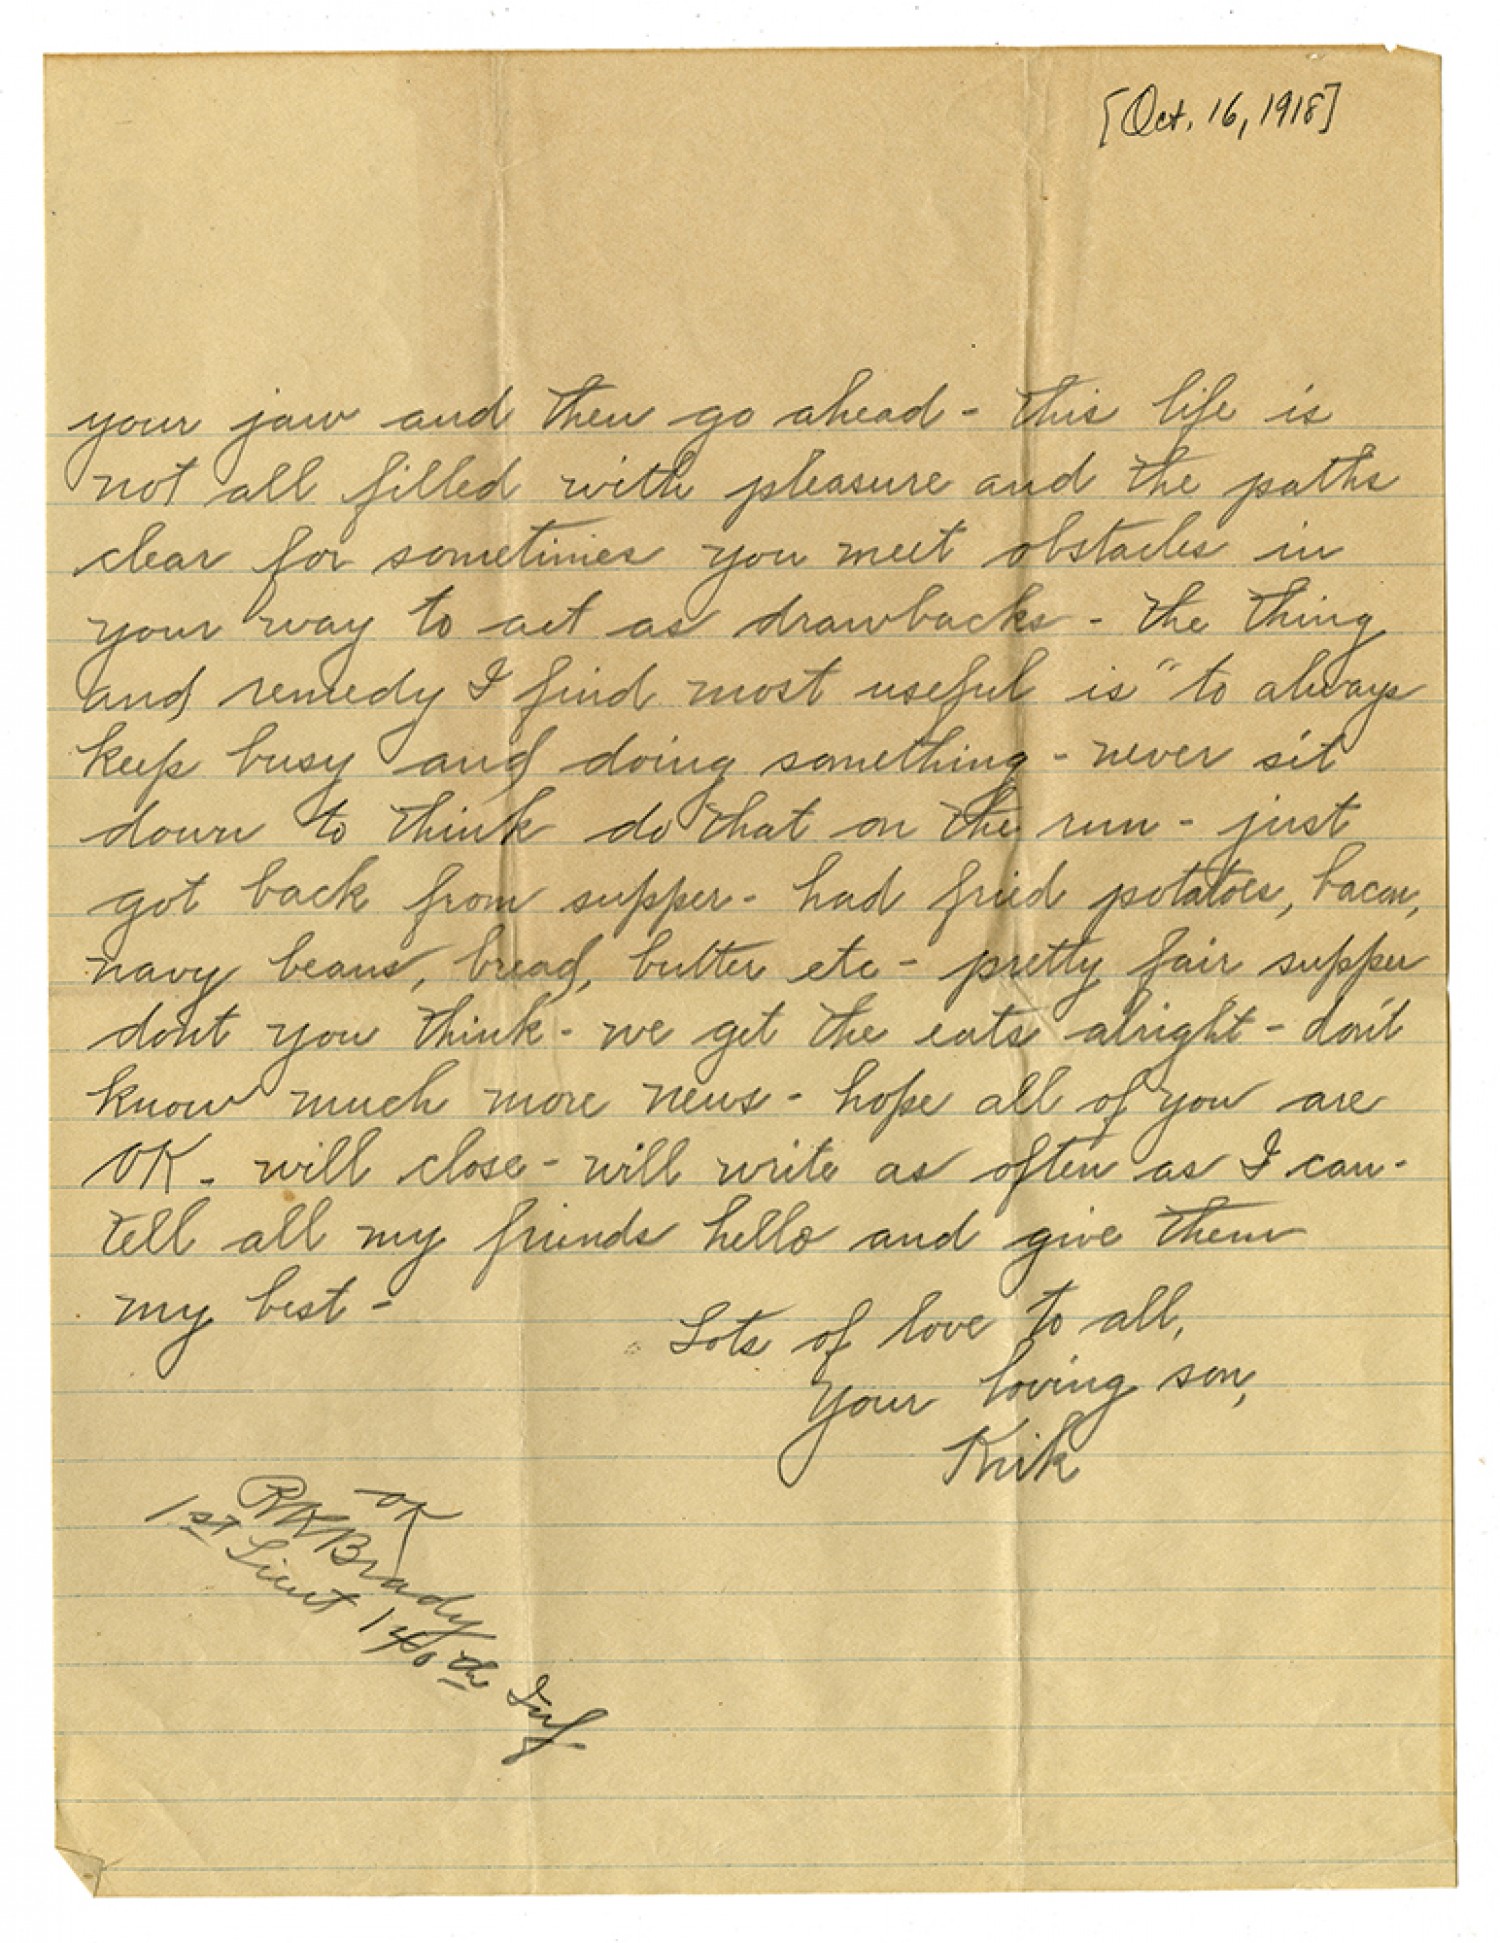 [Oct. 16, 1918]
your jaw and then go ahead - this life is
not all filled with pleasure and the paths
clear for sometimes you meet obstacles in
your way to act as drawbacks - the thing
and remedy I find most useful is "to always
keep busy and doing something - never sit
down to think do that on the run - just
got back from supper - had fried potatoes, bacon,
navy beans, bread, butter etc - pretty fair supper
dont you think - we get the eats alright - don't
know much more news - hope all of you are
OK - will close - will write as often as I can -
tell all my friends hello and give them
my best -
Lots of love to all,
Your loving son,
Knik
OK
R K Brady
1st Lieut 140th Inf.